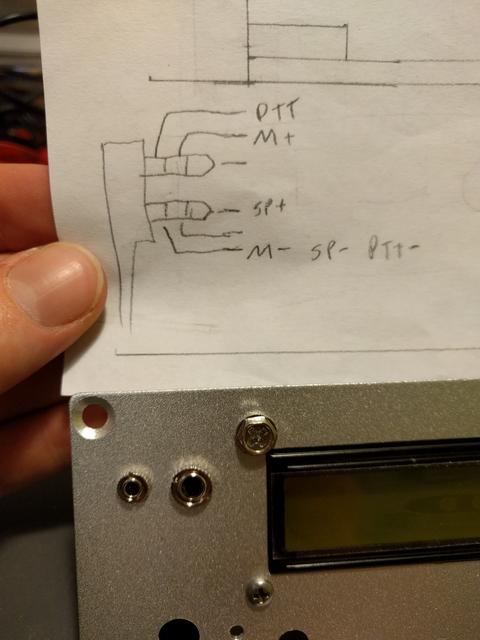 PTT
M+
SP+
M- SP- PTT-